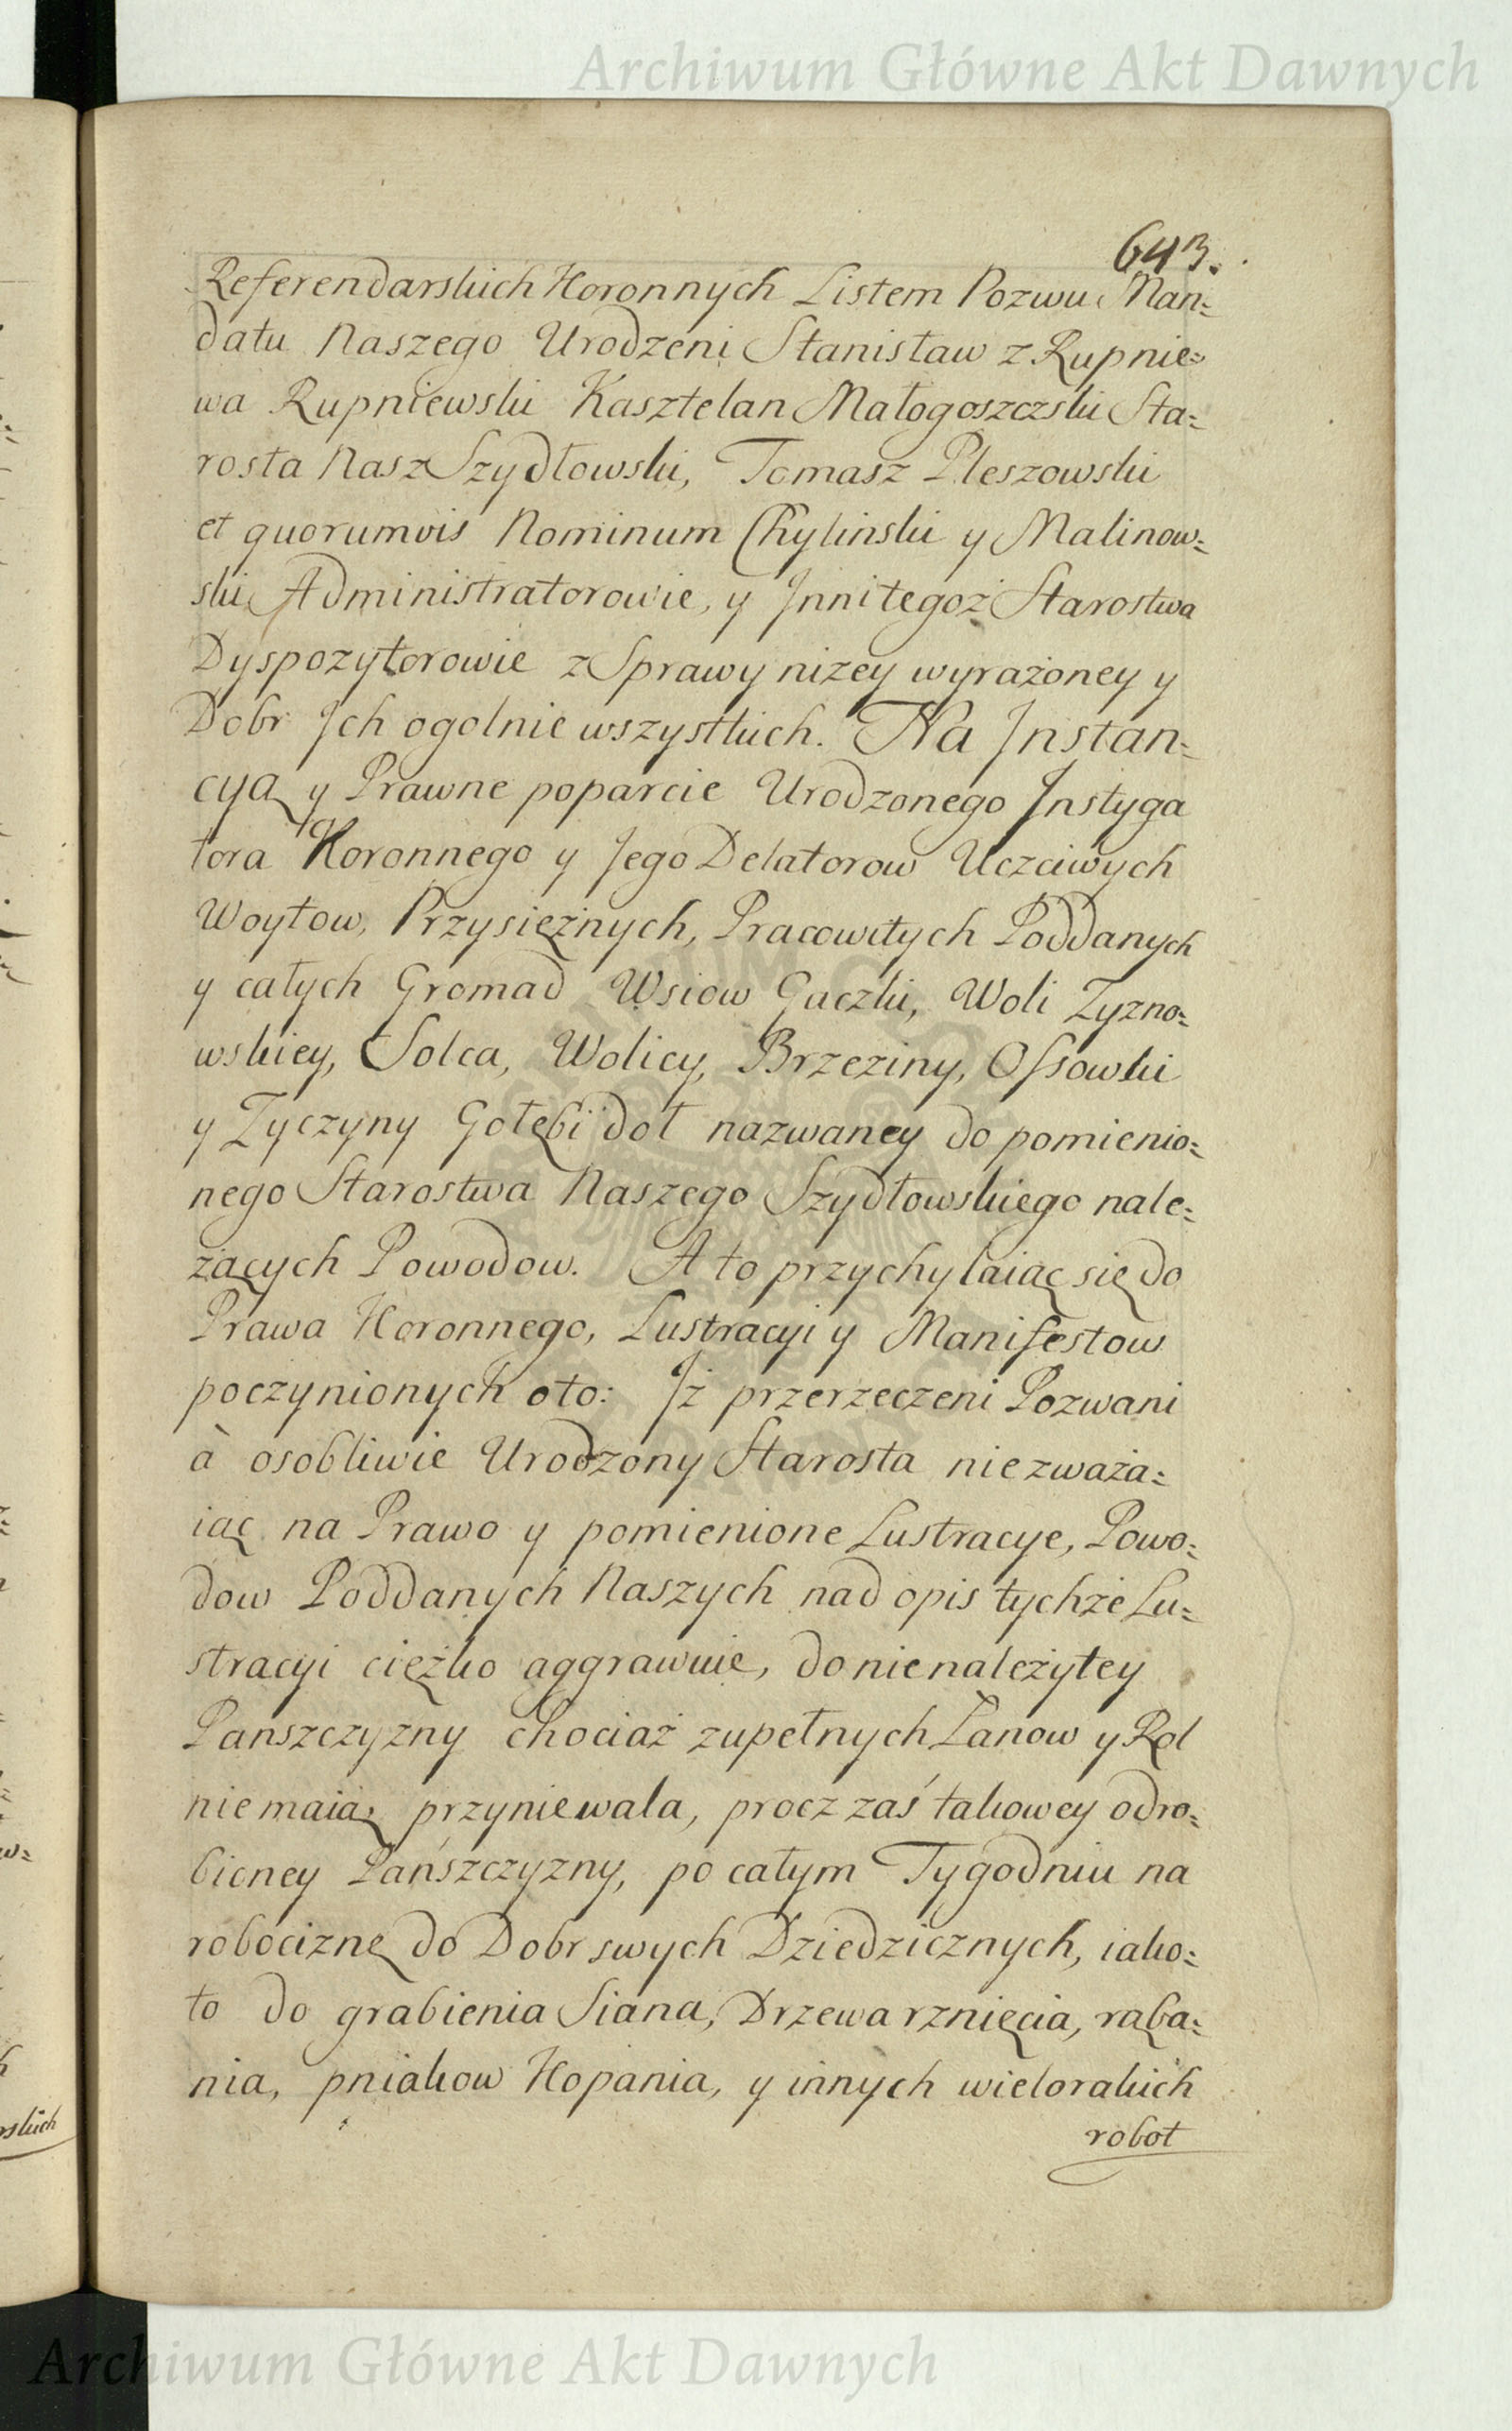 Archiwum Główne Akt Dawnych
643.
Referendarskich Koronnych Listem Pozwu Man=
datu Naszego Urodzeni Stanisław z Rupnie=
wa Rupniewski Kasztelan Małogoszczski Sta=
rosta Nasz Szydłowski, Tomasz Pleszowski
et quorumvis Nominum Chylinski y Malinow=
ski Administratorowie, y Jnni tegoż Starostwa
Dyspozytorowie z Sprawy niżey wyrażoney y
Dobr Jch ogolnie wszystkich. Na Jnstan=
cyą y Prawne poparcie Urodzonego Jnstyga
tora Koronnego y Jego Delatorow Uczciwych
Woytow, Przysiężnych, Pracowitych Poddanych
y całych Gromad Wsiow Gaczki, Woli Zyzno=
wskiey, Solca, Wolicy, Brzeziny, Ossowki
y Zyczyny Gołębi doł nazwaney do pomienio=
nego Starostwa Naszego Szydłowskiego nale=
żących Powodow. A to przychylaiąc się do
Prawa Koronnego, Lustracyi y Manifestow
poczynionych oto: Jż przerzeczeni Pozwani
à osobliwie Urodzony Starosta nie zważa=
iąc na Prawo y pomienione Lustracye, Powo=
dow Poddanych Naszych nad opis tychże Lu=
stracyi ciężko aggrawuie, do nienależytey
Panszczyzny chociaż zupełnych Łanow y Rol
nie maią, przyniewala, procz zaś takowey odro=
bioney Pańszczyzny, po całym Tygodniu na
robociznę do Dobr swych Dziedzicznych, iako=
to do grabienia Siana, Drzewa rznięcia, rąba=
nia, pniakow Kopania, y innych wielorakich
robot
rskich
Archiwum Główne Akt Dawnych